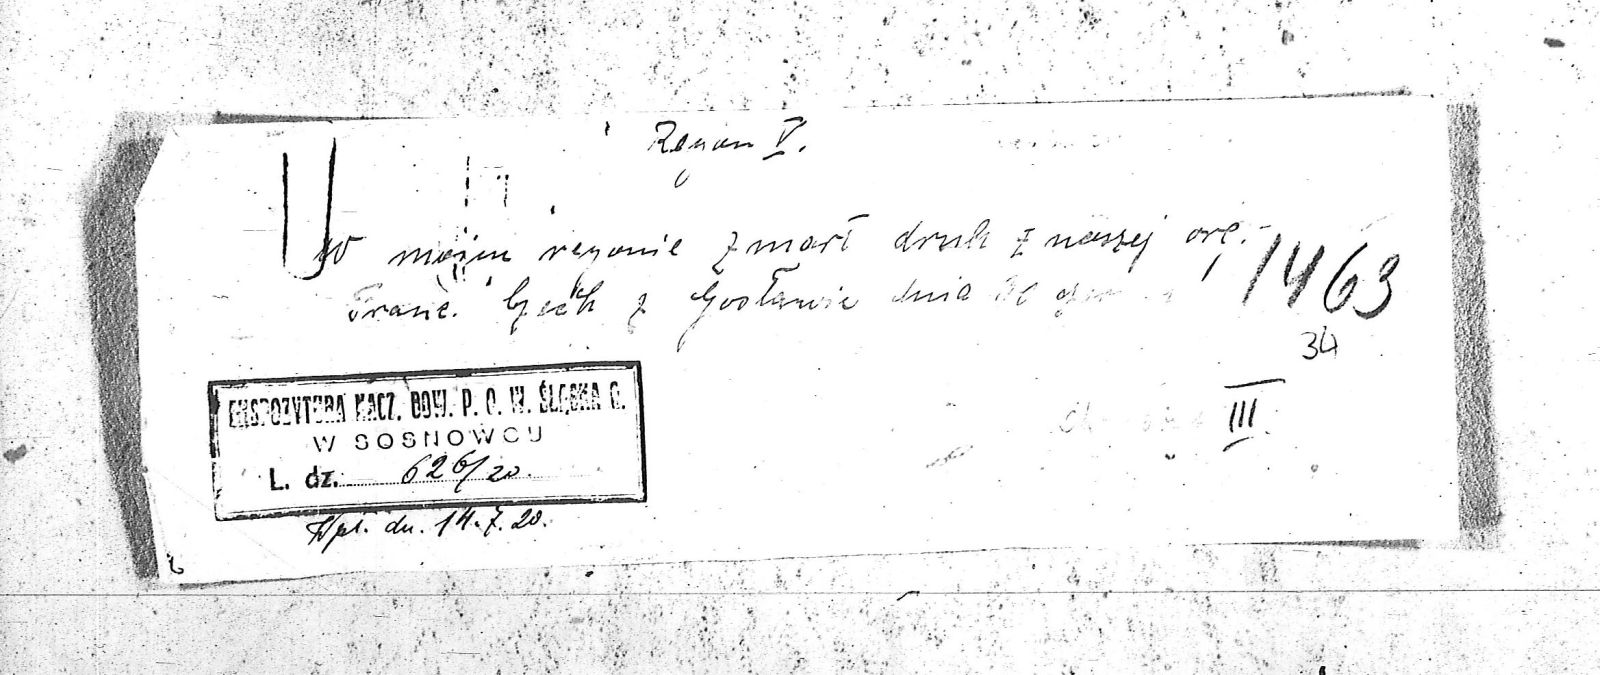 Rejon V.
W mojim rejonie zmarł druh z naszej org.
Franc. z Gosławic dnia 30
1463
34
III
EKSPOZYTURA NACZ. DOW. P. O. W. ŚLĄSKA G.
W SOSNOWCU
L. dz. 626/20.
Wpł. dn. 14.7.20.